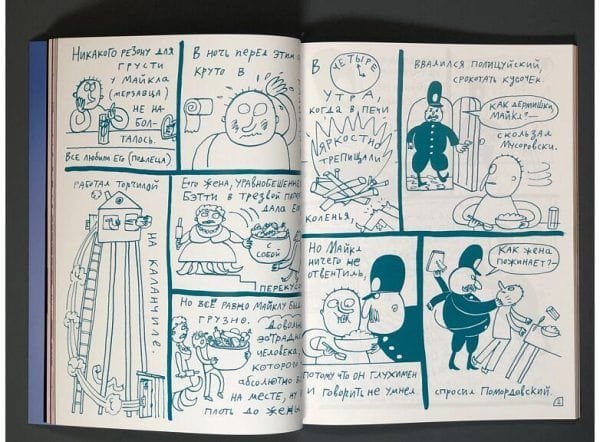 НИКАКОГО РЕЗОНУ ДЛЯ
ГРУСТИ
У МАЙКЛА
(МЕРЗАВЦА)
НЕ НА-
БОЛ-
ТАЛОСЬ.
ВСЕ ЛЮБИЛИ ЕГО (ПОДЛЕЦА)
В НОЧЬ ПЕРЕД ЭТИМ
КРУТО В
РАБОТАЛ ТОРЧИЛОЙ
НА КАЛАНЧИЛЕ
ЕГО ЖЕНА, УРАВНОБЕШЕННЕ
БЭТТИ В ТРЕЗВОЙ ПЕРЕ
ДАЛА ЕМ
С
СОБОЙ
ПЕРЕКУСО
НО ВСЁ РАВНО МАЙКЛУ БЫЛ
ГРУЗНО.
ДОВОЛЬ
ЭСТРАДН
ЧЕЛОВЕКА,
КОТОРОГО
АБСОЛЮТНО В
НА МЕСТЕ, НУ
ПЛОТЬ ДО ЖЕНЫ
В ЧЕТЫРЕ
УТРА,
КОГДА В ПЕЧИ
ЯРКОСТНО
ТРЕПИЩАЛИ
КОЛЕНЬЯ,
ВВАЛИЛСЯ ПОЛИЦУЙСКИЙ,
СРОКОТАТЬ КУСОЧЕК.
КАК ДЕРМИШКИ,
МАЙКЛ?—
СКОЛЬЗАЛ
МУСОРОВСКИ.
НО МАЙКЛ
НИЧЕГО НЕ
ОТВЕНТИЛЬ,
ПОТОМУ ЧТО ОН ГЛУХИМЕН
И ГОВОРИТЬ НЕ УМНЕЛ.
КАК ЖЕНА
ПОЖИНАЕТ?—
СПРОСИЛ ПОМОРДОВСКИЙ.